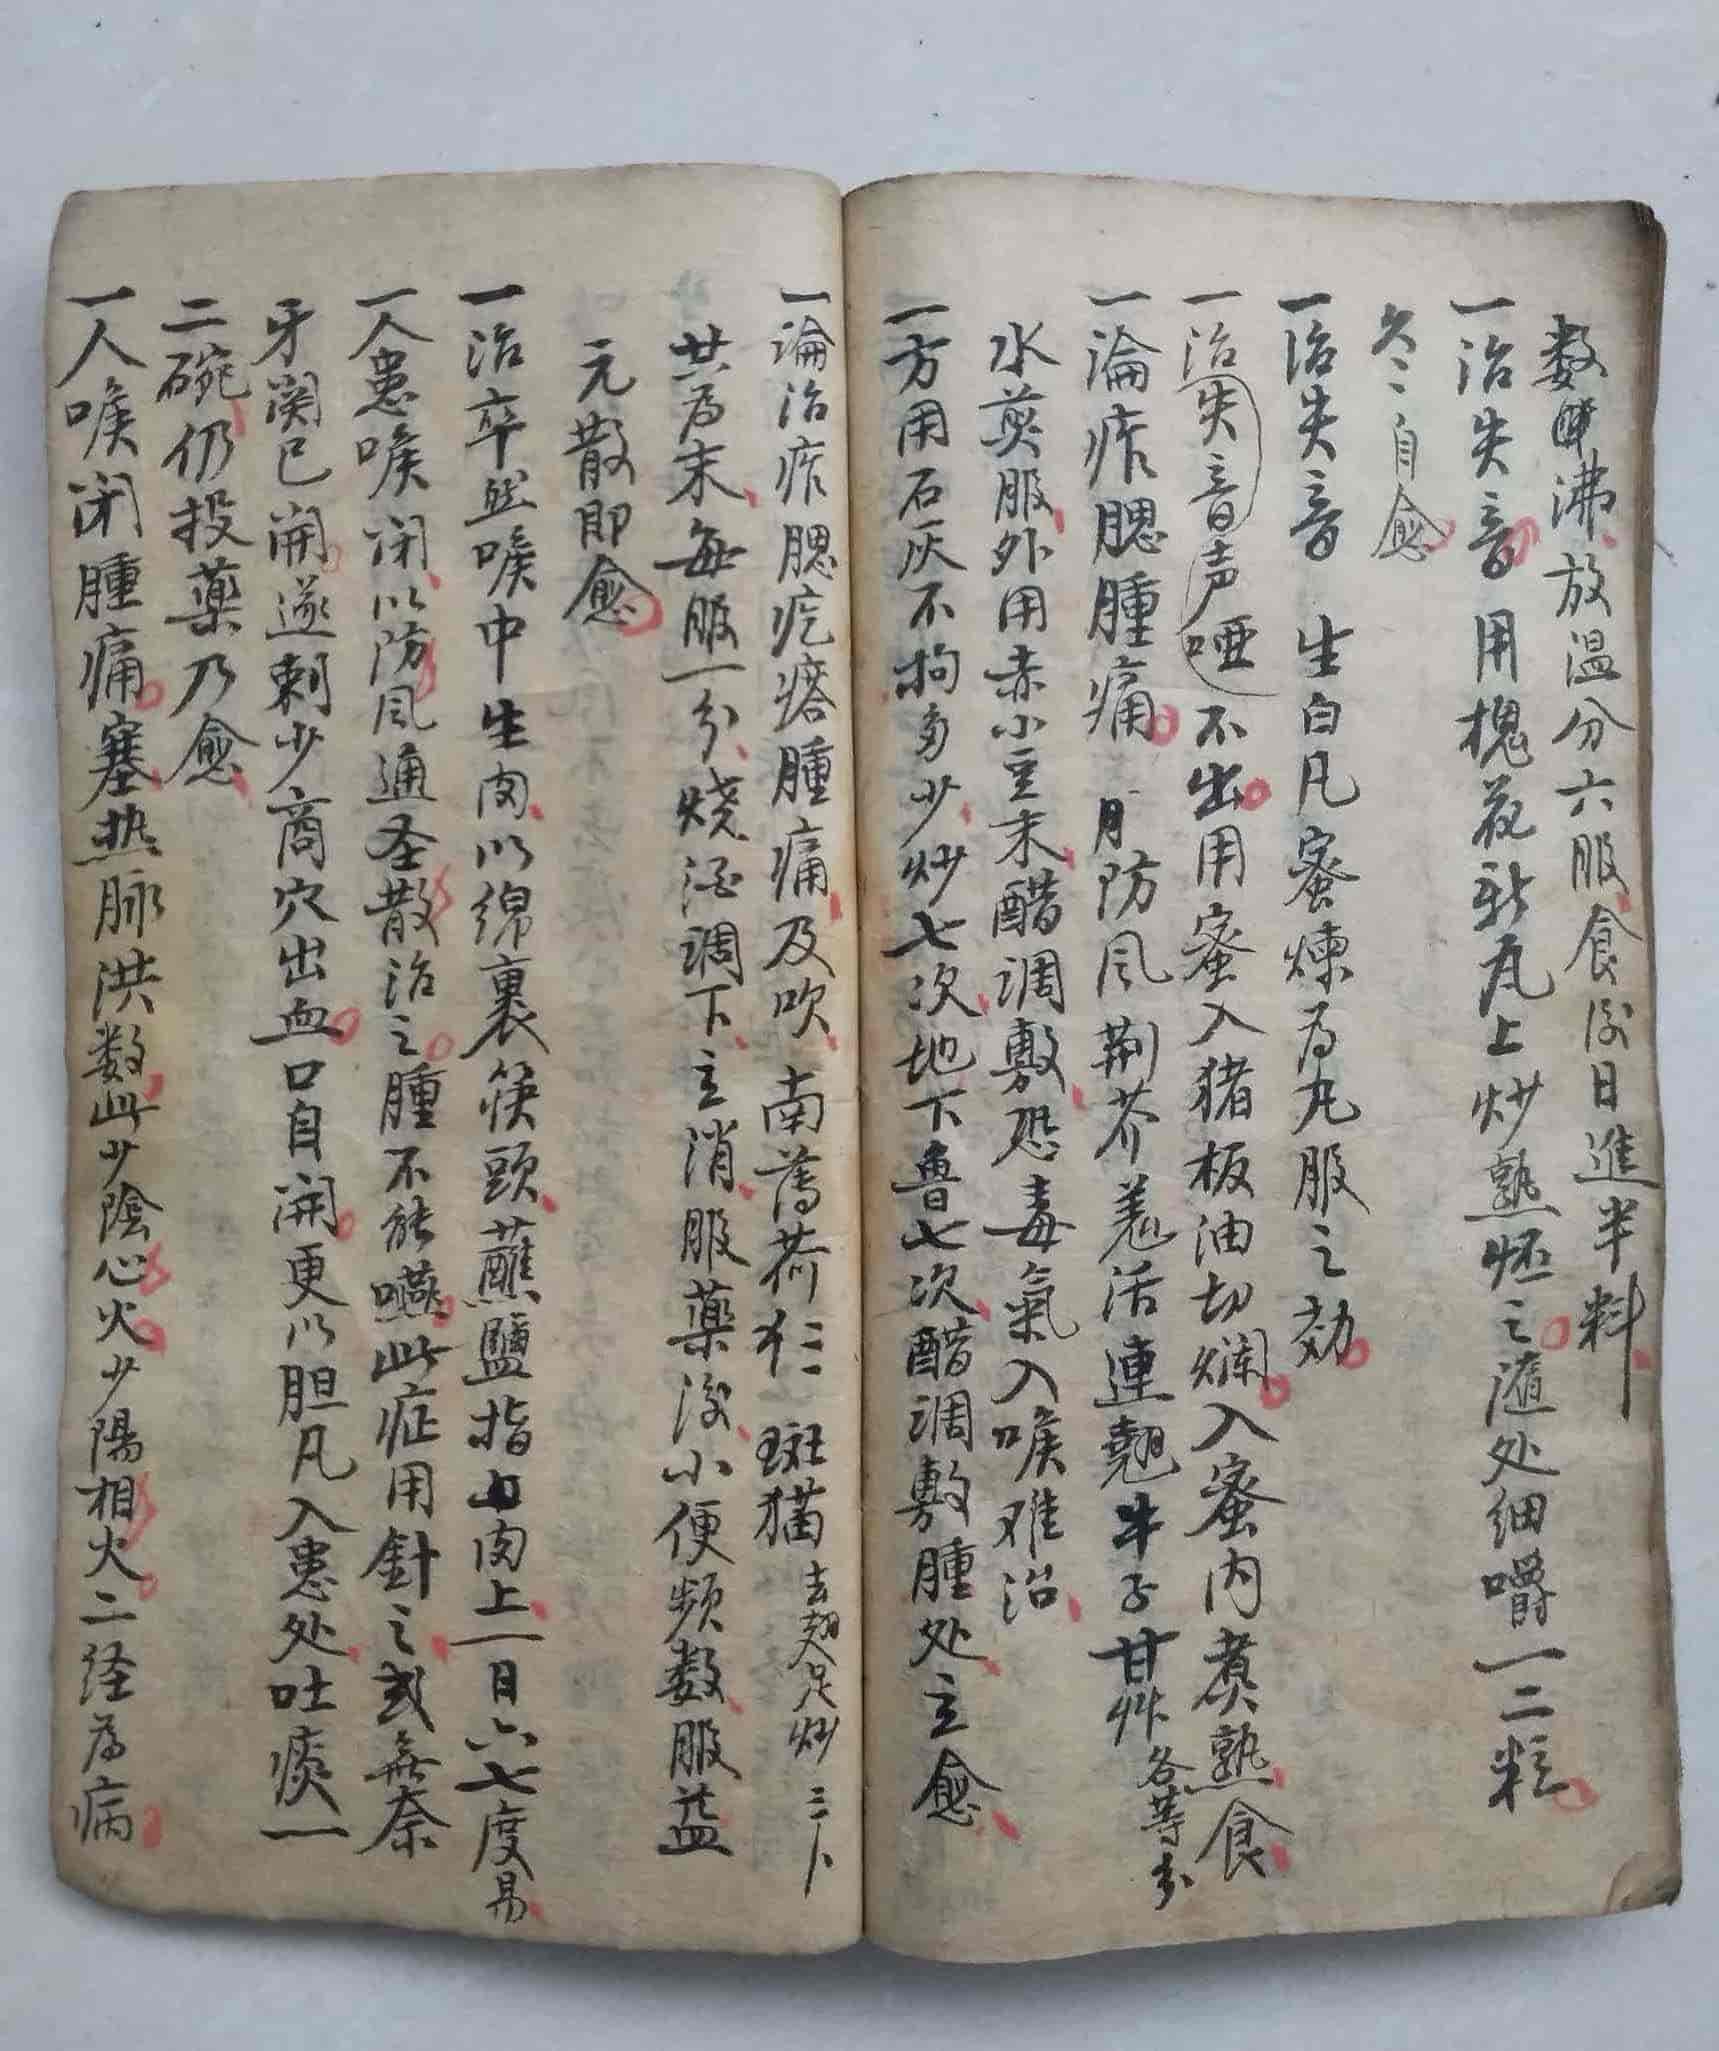 数沸放温分六服食后日進半料
一治失音用槐花新瓦上炒熟怀之随处细嚼一二粒
久久自愈
一治失音 生白凡蜜煉為丸服之効
一治失音声哑不出用蜜入猪板油切爛入蜜內煮熟食
一論痄腮腫痛 防风荆芥羗活連翹牛子甘艸各等分
水煎服外用赤小豆末醋调敷恐毒氣入喉难治
一方用石灰不拘多少炒七次地下鲁七次醋调敷腫处立愈
一論治痄腮疙瘩腫痛及吹 南薄荷仁 斑猫去翅足炒三卜
共為末每服一分烧酒调下立消服薬後小便频数服益
元散即愈
一治卒然喉中生肉以绵裹筷頭蘸鹽指肉上一日六七度易
一人患喉闭以防风通圣散治之腫不能嚥此症用針之或無奈
牙関已開遂刺少商穴出血口自開更以胆凡入患处吐痰一
二碗仍投薬乃愈
一人喉闭腫痛寒热脉洪数此少陰心火少陽相火二经為病